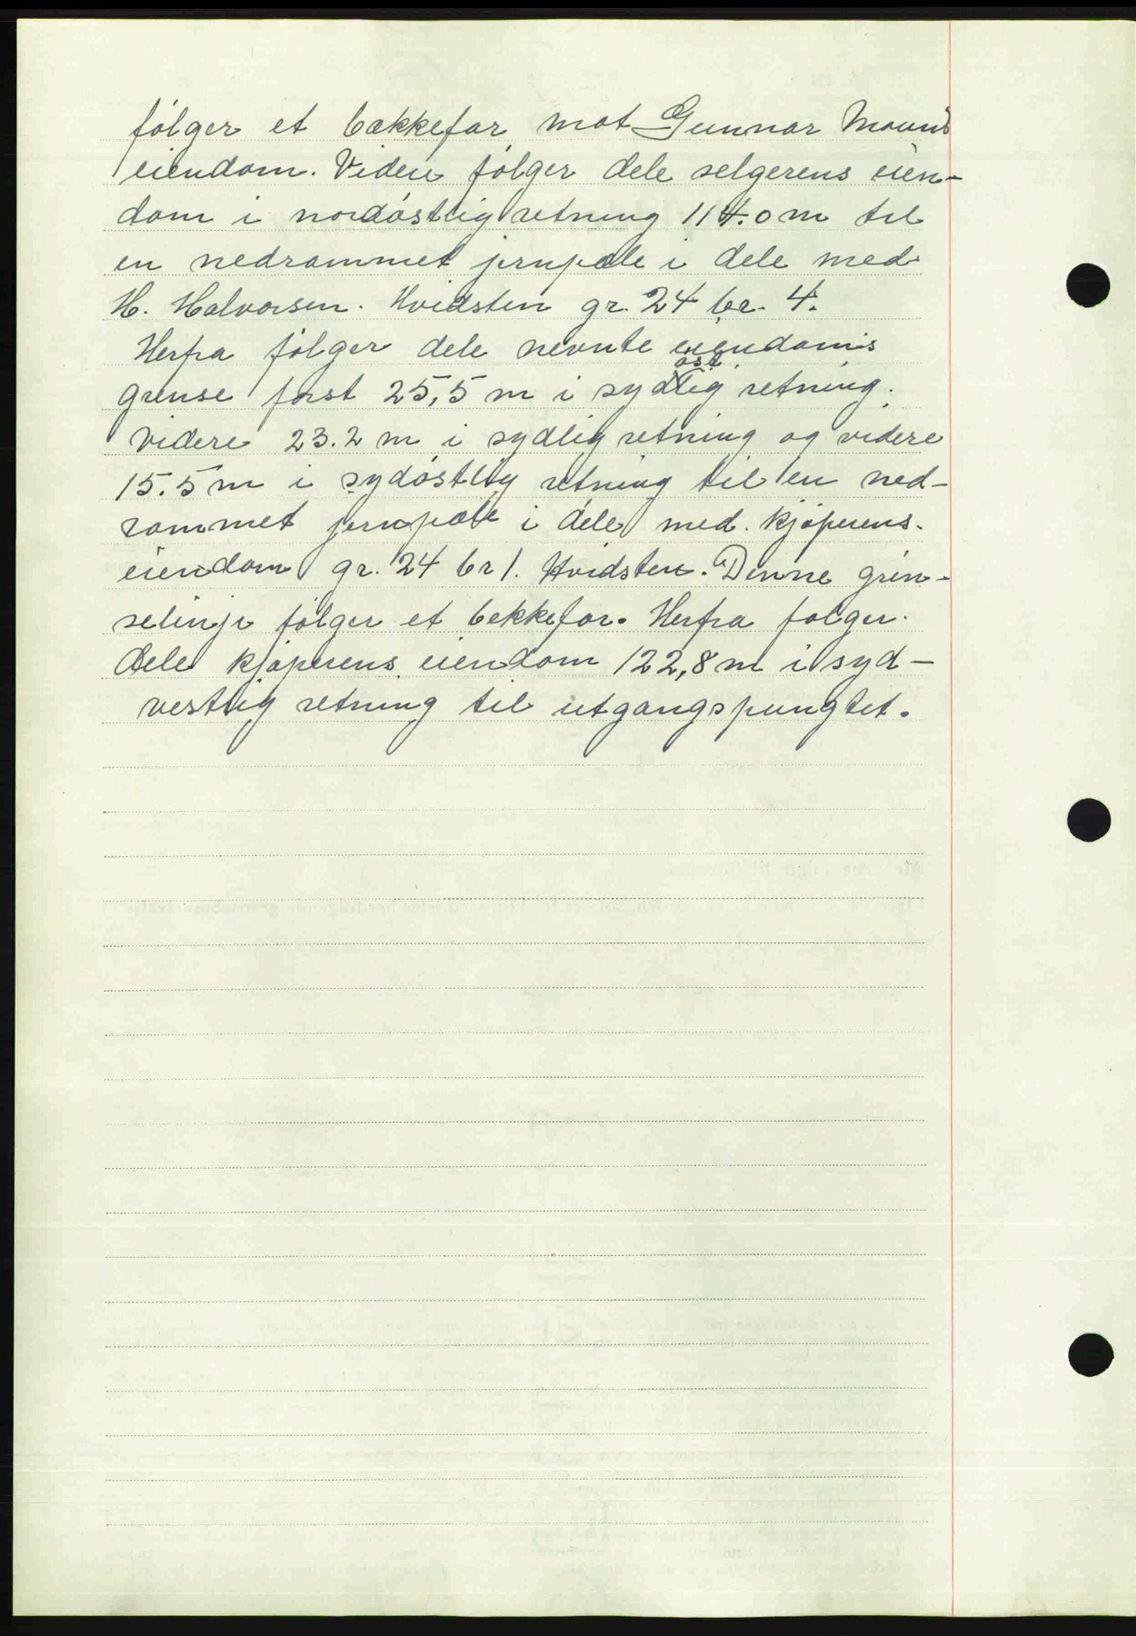 følger et bækkefar mot Gunnar Mouns
eiendom. Videre følger dele selgerens eien-
dom i nordøstlig retning 114.0 m til
en nedrammet jernpæle i dele med
H. Halvorsen. Hvidsten gr. 24 br. 4.
Herfra følger dele nevnte eiendoms
øst
grense først 25,5 m i sydlig retning.
videre 23.2 m i sydlig retning og videre
15.5 m i sydøstlig retning til en ned-
rammet jernpæle i dele med kjøperens
eiendom gr. 24 br 1. Hvidsten. Denne gren-
selinje følger et bekkefar. Herfra følger
dele kjøperens eiendom 122,8 m i syd-
vestlig retning til utgangspungtet.